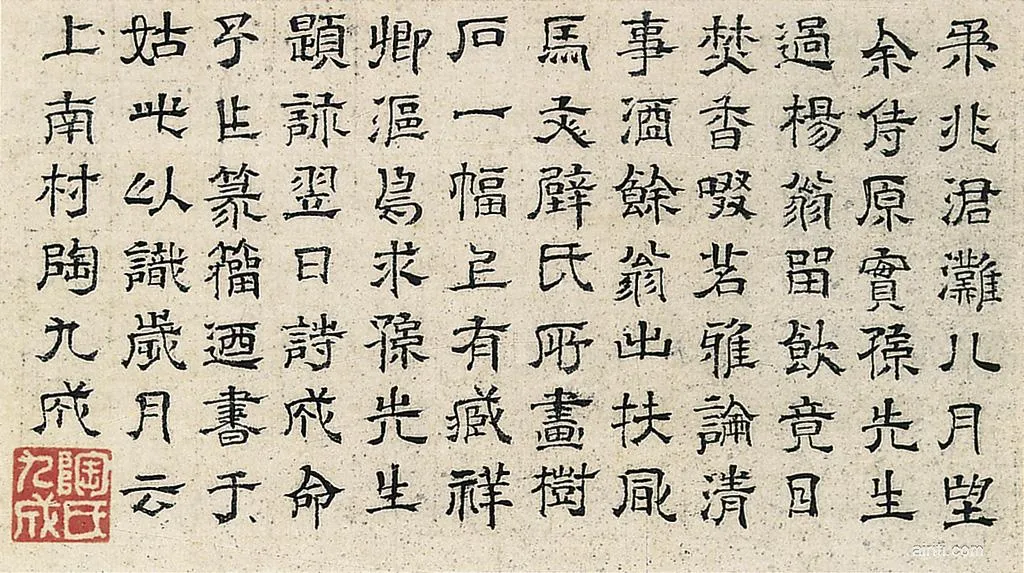 柔兆涒灘八月望
余侍原實孫先生
過楊翁留飲竟日
焚香啜茗雅論清
事酒餘翁出扶風
馬文璧氏所畫樹
石一幅上有藏祥
卿漚鳥求孫先生
題詠翌日詩成命
予乍篆籀迺書于
姑此以識歲月云
上南村陶九成
陶氏九成
aihti.com